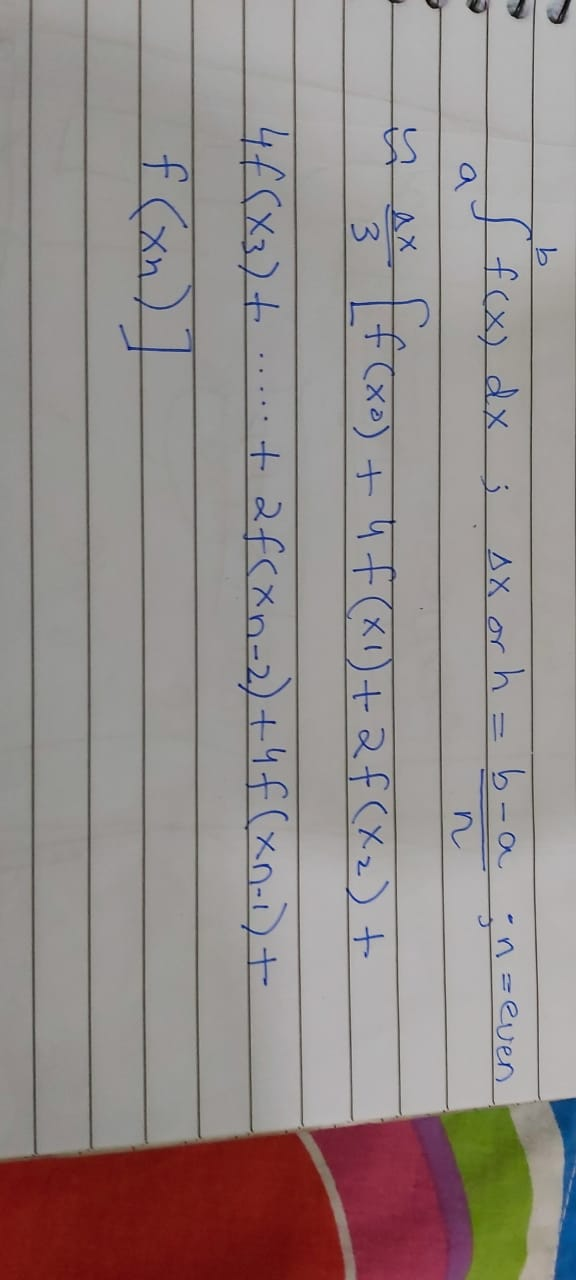 a∫b f(x) dx ; Δx or h = b-a/n ; n = even
≈ Δx/3 [f(x0) + 4f(x1) + 2f(x2) +
4f(x3) + ...... + 2f(xn-2) + 4f(xn-1) +
f(xn)]